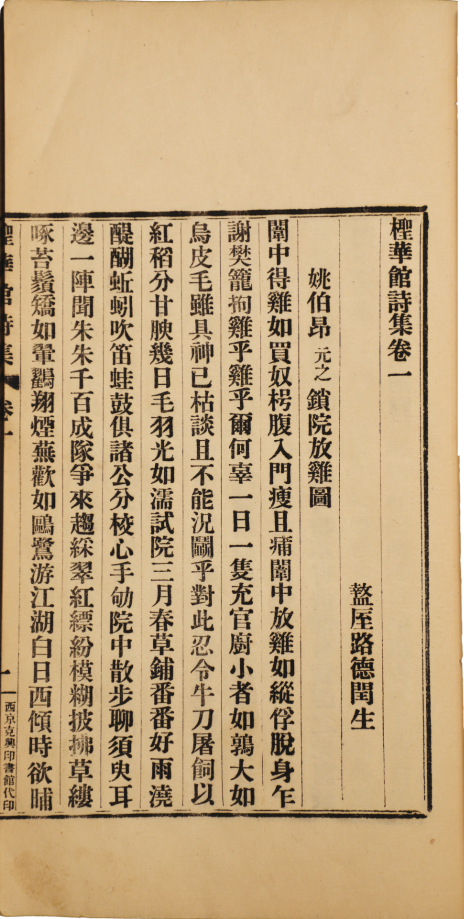 檉華館詩集卷一
盩厔路德閏生
姚伯昂元之鎖院放雞圖
闈中得雞如買奴枵腹入門瘦且痡闈中放雞如縱俘脫身乍
謝樊籠拘雞乎雞乎爾何辜一日一隻充官廚小者如鶉大如
烏皮毛雖具神已枯談且不能況鬬乎對此忍令牛刀屠飼以
紅稻分甘腴幾日毛羽光如濡試院三月春草鋪番番好雨澆
醍醐蚯蚓吹笛蛙鼓俱諸公分校心手劬院中散步聊須臾耳
邊一陣聞朱朱千百成隊爭來趨綵翠紅縹紛模糊披拂草縷
啄苔鬚矯如翬鷂翔煙蕪歡如鷗鷺游江湖白日西傾時欲晡
檉華館詩集 卷一
一
西京克興印書館代印